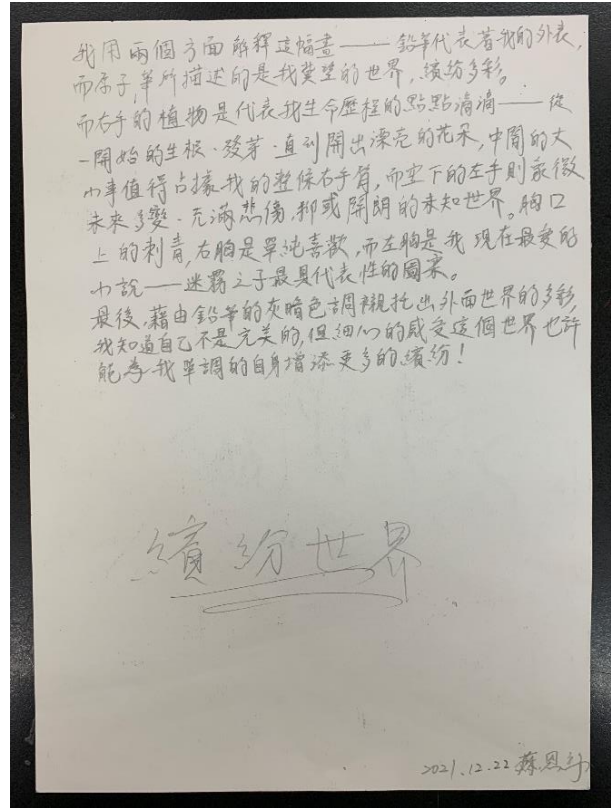 我用兩個方面解釋這幅畫——鉛筆代表著我的外表,
而原子筆所描述的是我冀望的世界,繽紛多彩。
而右手的植物是代表我生命歷程的點點滴滴——從
一開始的生根、發芽、直到開出漂亮的花朵,中間的大
小事值得占據我的整條右手臂,而空下的左手則象徵
未來多變、充滿悲傷,抑或開朗的未知世界。胸口
上的刺青,右胸是單純喜歡,而左胸是我現在最愛的
小說——迷霧之子最具代表性的圖案。
最後,藉由鉛筆的灰暗色調襯托出外面世界的多彩,
我知道自己不是完美的,但細心的感受這個世界也許
能為我單調的自身增添更多的繽紛!
繽紛世界
2021.12.22 蘇恩